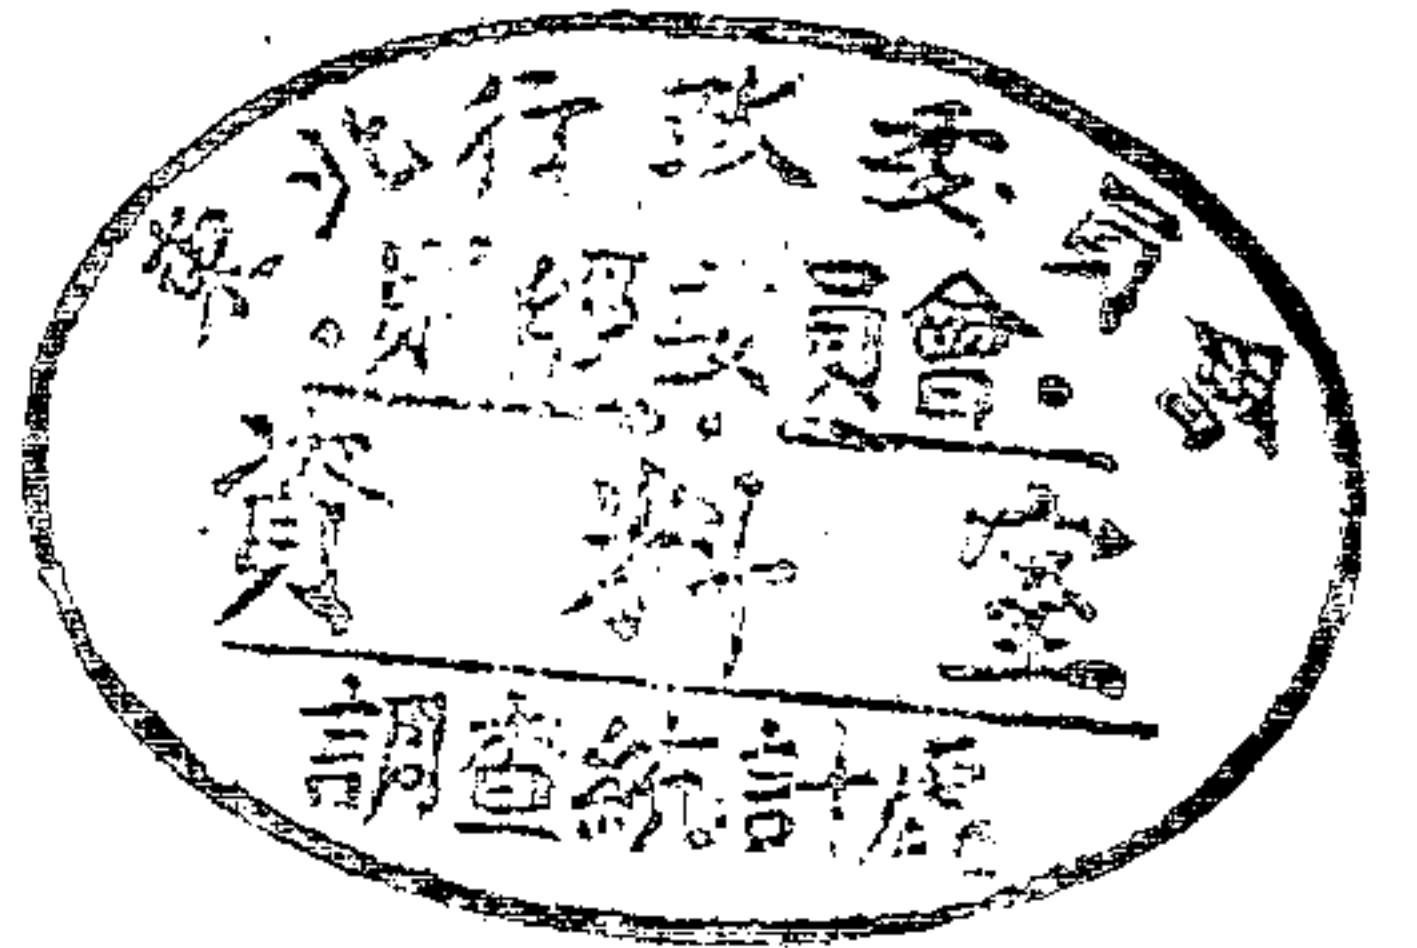 東北行政委員會
·財經委員會·
資料室
調查統計處